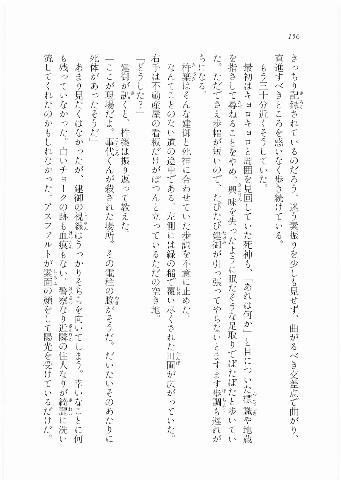 156
きっちり記録されているのだろう、迷う素振りを少しも見せず、曲がるべき交差点で曲がり、
直進すべきところを惑いなく歩き続けている。
もう三十分近くそうしていた。
最初はキョロキョロと周囲を見回していた死神も、「あれは何か」と目についた標識や地蔵
を指さして尋ねることをやめ、興味を失ったように眠たそうな足取りでぽたぽたと歩いてい
た。ただでさえ歩幅が短いので、たびたび建御が引っ張ってやらないとますます歩調も遅れが
ちになる。
柊葉はそんな建御と死神に合わせていた歩調を不意に止めた。
なんてことのない道の途中である。左側には緑の稲で覆い尽くされた田園が広がっていた。
右手は不動産屋の看板だけがぽつんと立っているただの空き地。
「どうした？」
建御が訊くと、柊葉は振り返って教えた。
「ここが現場だよ。事代くんが殺された場所。その電柱の脇がそうだ。だいたいそのあたりに
死体があったそうだ」
あまり見たくはなかったが、建御の視線はうっかりそちらを向いてしまう。幸いなことに何
も残っていなかった。白いチョークの跡も血痕もない。警察なり近隣の住人なりが綺麗に洗い
流してくれたのかもしれなかった。アスファルトが素面の顔をして陽光を受けているだけだ。